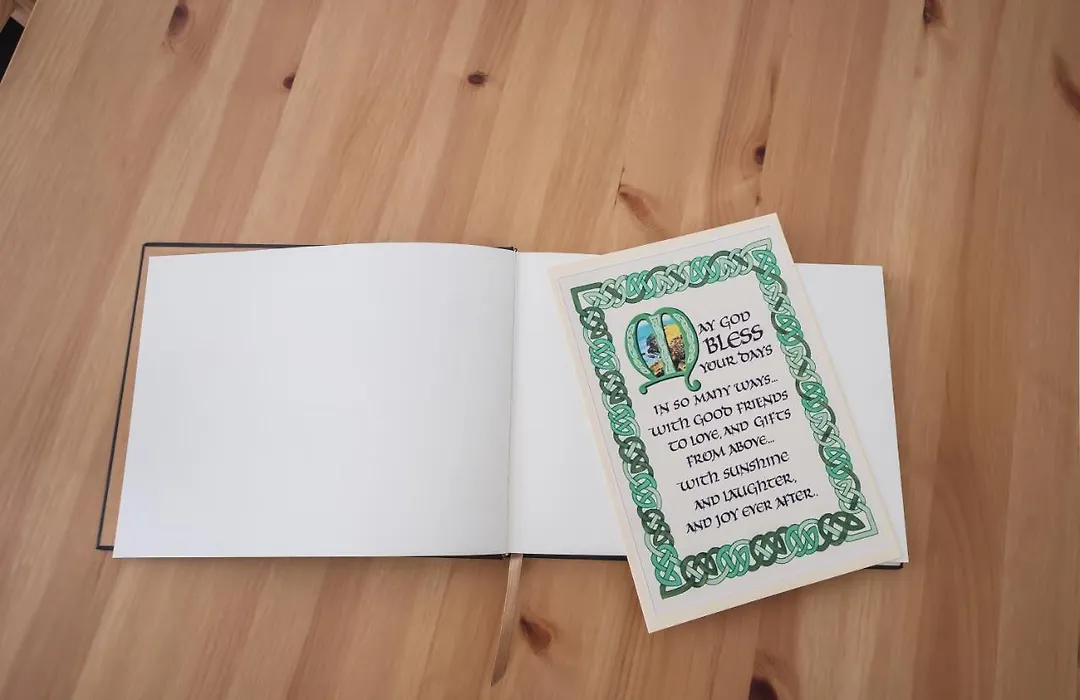 MAY GOD
BLESS
YOUR DAYS
IN SO MANY WAYS...
WITH GOOD FRIENDS
TO LOVE, AND GIFTS
FROM ABOVE...
WITH SUNSHINE
AND LAUGHTER,
AND JOY EVER AFTER..